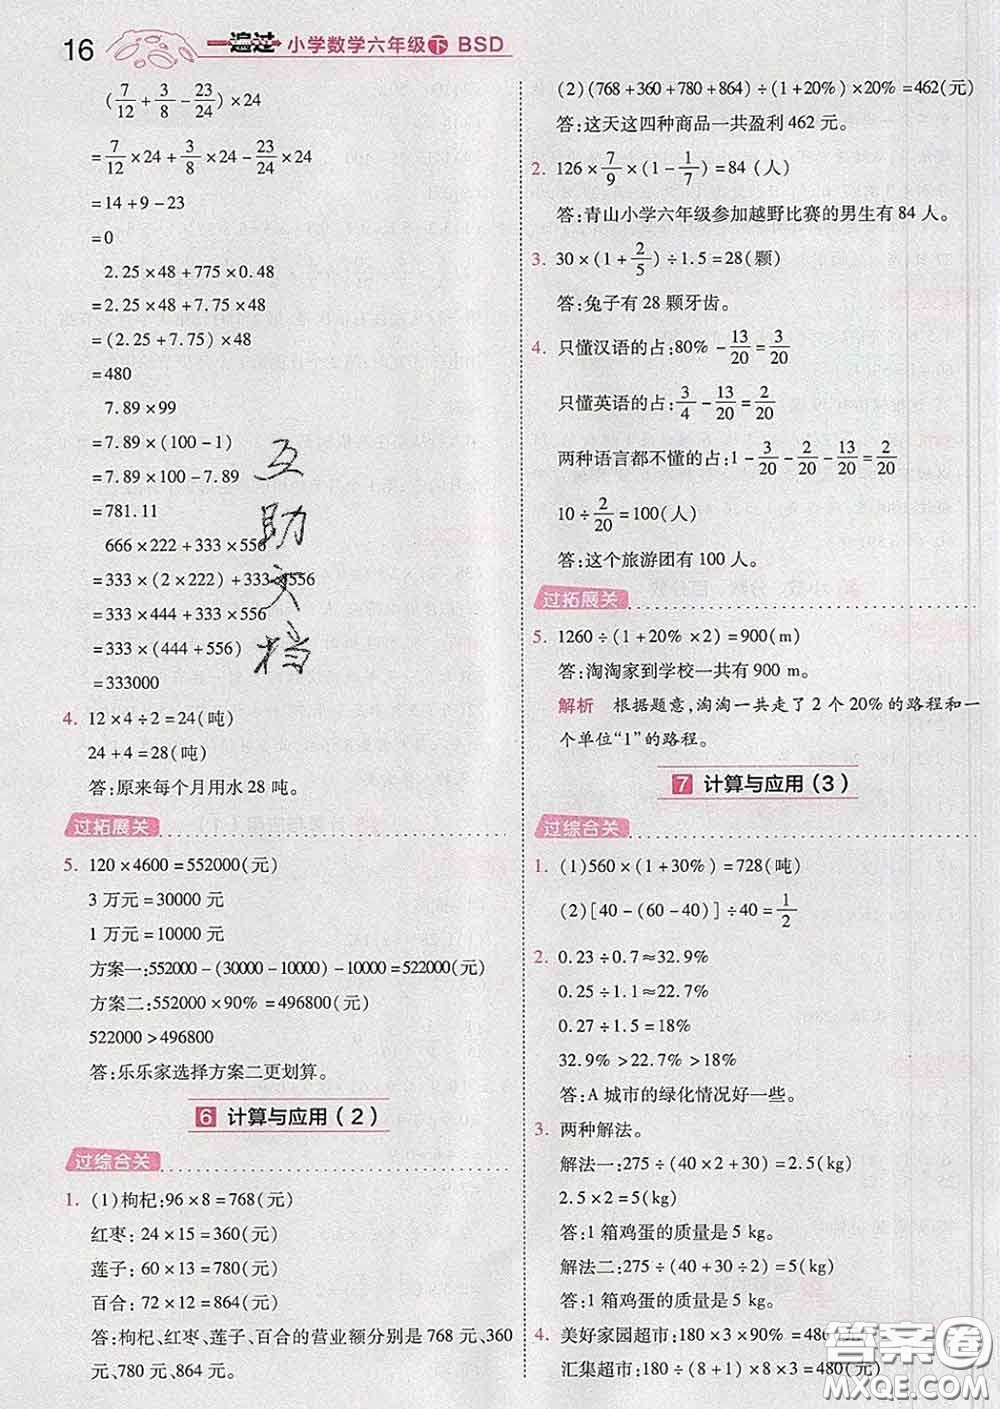 16 一遍过 小学数学六年级下 BSD
(7/12+3/8-23/24)×24
=7/12×24+3/8×24-23/24×24
=14+9-23
=0
2.25×48+775×0.48
=2.25×48+7.75×48
=(2.25+7.75)×48
=480
7.89×99
=7.89×(100-1)
=7.89×100-7.89
=781.11
666×222+333×556
=333×(2×222)+333×556
=333×444+333×556
=333×(444+556)
=333000
互助文档
4. 12×4÷2=24(吨)
24+4=28(吨)
答:原来每个月用水28吨。
过拓展关
5. 120×4600=552000(元)
3万元=30000元
1万元=10000元
方案一:552000-(30000-10000)-10000=522000(元)
方案二:552000×90%=496800(元)
522000>496800
答:乐乐家选择方案二更划算。
6 计算与应用(2)
过综合关
1. (1)枸杞:96×8=768(元)
红枣:24×15=360(元)
莲子:60×13=780(元)
百合:72×12=864(元)
答:枸杞、红枣、莲子、百合的营业额分别是768元、360
元、780元、864元。
(2)(768+360+780+864)÷(1+20%)×20%=462(元)
答:这天这四种商品一共盈利462元。
2. 126×7/9×(1-1/7)=84(人)
答:青山小学六年级参加越野比赛的男生有84人。
3. 30×(1+2/5)÷1.5=28(颗)
答:兔子有28颗牙齿。
4. 只懂汉语的占:80%-13/20=3/20
只懂英语的占:3/4-13/20=2/20
两种语言都不懂的占:1-3/20-2/20-13/20=2/20
10÷2/20=100(人)
答:这个旅游团有100人。
过拓展关
5. 1260÷(1+20%×2)=900(m)
答:淘淘家到学校一共有900 m。
解析 根据题意,淘淘一共走了2个20%的路程和一
个单位“1”的路程。
7 计算与应用(3)
过综合关
1. (1)560×(1+30%)=728(吨)
(2)[40-(60-40)]÷40=1/2
2. 0.23÷0.7≈32.9%
0.25÷1.1≈22.7%
0.27÷1.5=18%
32.9%>22.7%>18%
答:A城市的绿化情况好一些。
3. 两种解法。
解法一:275÷(40×2+30)=2.5(kg)
2.5×2=5(kg)
答:1箱鸡蛋的质量是5 kg。
解法二:275÷(40+30÷2)=5(kg)
答:1箱鸡蛋的质量是5 kg。
4. 美好家园超市:180×3×90%=486(元)
汇集超市:180÷(8+1)×8×3=480(元)
答案圈
MXQE.COM